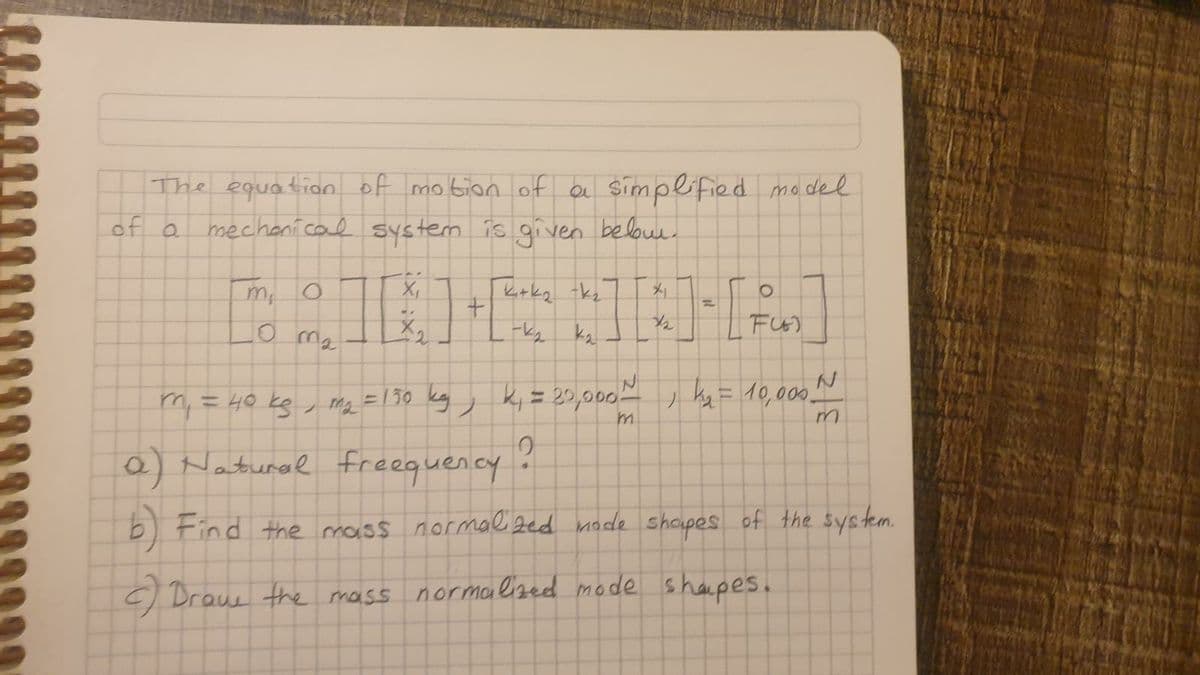 The equation of motion of a simplified model
of a mechanical system is given below.
[m₁ 0] [ẍ₁] + [k₁+k₂ -k₂] [x₁] = [0]
[0 m₂] [ẍ₂] [-k₂ k₂] [x₂] [F(t)]
m₁ = 40 kg, m₂ = 150 kg, k₁ = 20,000 N/m, k₂ = 10,000 N/m
a) Natural freequency?
b) Find the mass normalized mode shapes of the system.
c) Draw the mass normalized mode shapes.